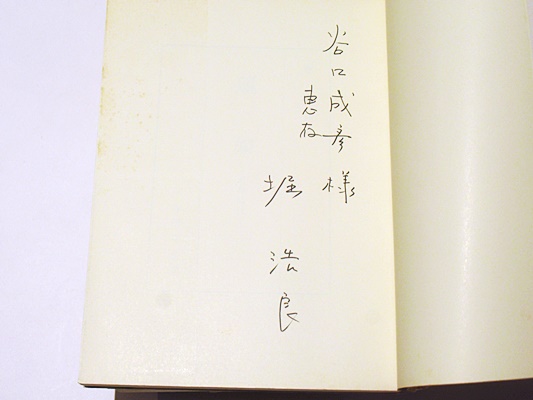 谷口成彦様
恵存
堀浩良